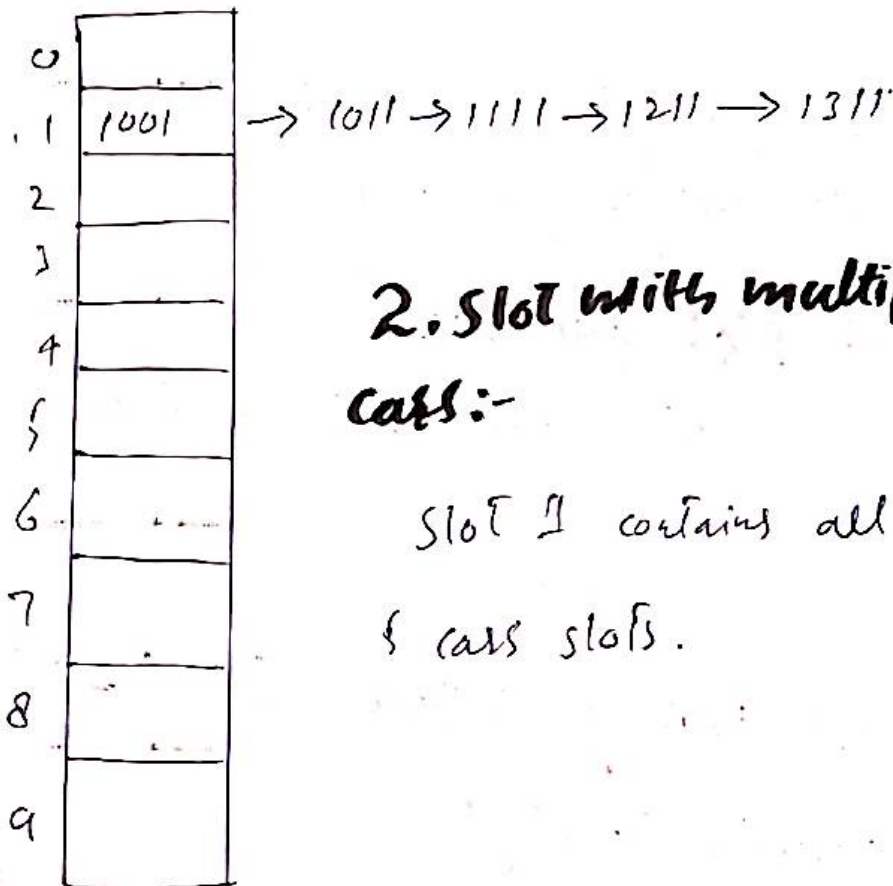 0
1 1001 → 1011 → 1111 → 1211 → 1311
2
3
4
5
6
7
8
9
2. Slot with
cars:-
Slot 1 contains all
5 cars slots.